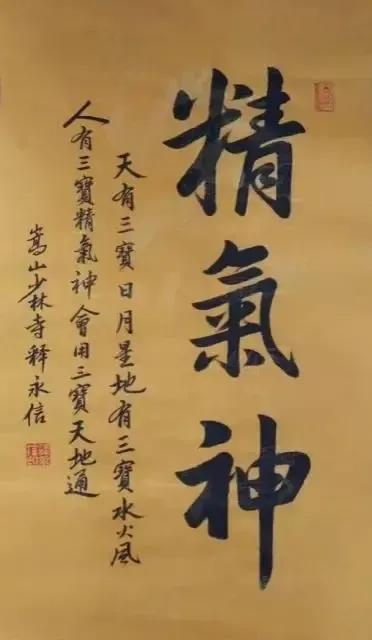 精氣神
天有三寶日月星地有三寶水火風
人有三寶精氣神會用三寶天地通
嵩山少林寺釋永信